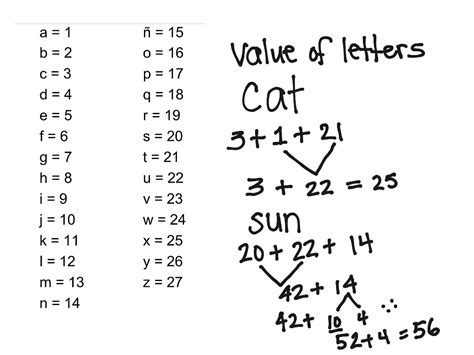 a = 1
b = 2
c = 3
d = 4
e = 5
f = 6
g = 7
h = 8
i = 9
j = 10
k = 11
l = 12
m = 13
n = 14
ñ = 15
o = 16
p = 17
q = 18
r = 19
s = 20
t = 21
u = 22
v = 23
w = 24
x = 25
y = 26
z = 27
Value of letters
Cat
3+1+21
3 + 22 = 25
sun
20 + 22 + 14
42 + 14
42 + 10 4
52+4 = 56